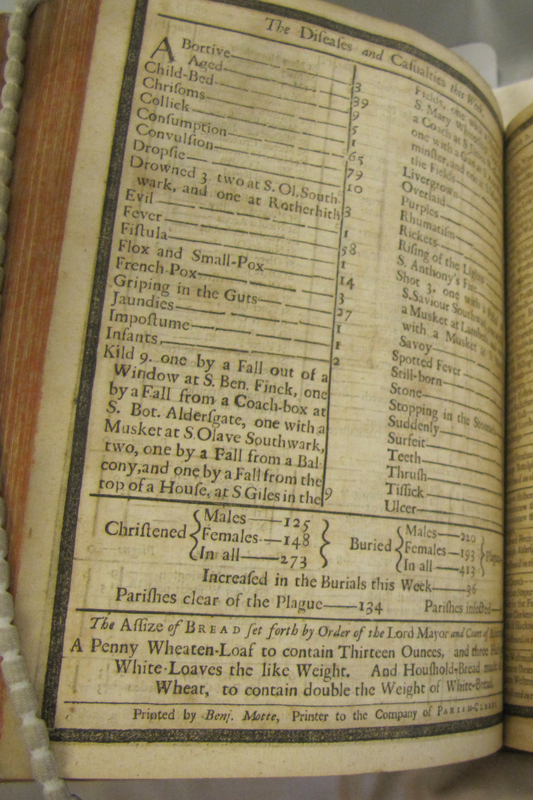 The Diseases and Casualties this Week.
ABortive 3
Aged 39
Child-Bed 9
Chrisoms 5
Collick 1
Consumption 65
Convulsion 79
Dropsie 10
Drowned 3. two at S. Ol. South-
wark, and one at Rotherhith 3
Evil 1
Fever 58
Fistula 1
Flox and Small-Pox 14
French-Pox 3
Griping in the Guts 27
Jaundies 1
Impostume 1
Infants 2
Kild 9. one by a Fall out of a
Window at S. Ben. Finck, one
by a Fall from a Coach-box at
S. Bot. Aldersgate, one with a
Musket at S Olave Southwark,
two, one by a Fall from a Bal-
cony, and one by a Fall from the
top of a House, at S Giles in the 9
Fields, one
S. Mary
a Coach at S.
one with a
minster, and one
the Fields
Livergrown
Overlaid
Purples
Rhumatism
Rickets
Rising of the Lights
S. Anthony's Fire
Shot 3. one with a
S. Saviour Southwark
a Musket at Lambeth
with a Musket at
Savoy
Spotted Fever
Still-born
Stone
Stopping in the Stomach
Suddenly
Surfeit
Teeth
Thrush
Tissick
Ulcer
Christened Males 125 Females 148 In all 273
Buried Males 220 Females 193 In all 413 Plague
Increased in the Burials this Week 36
Parishes clear of the Plague 134 Parishes infected
The Assize of BREAD set forth by Order of the Lord Mayor and Court of
A Penny Wheaten-Loaf to contain Thirteen Ounces, and three
White-Loaves the like Weight. And Houshold-Bread made
Wheat, to contain double the Weight of White-Bread.
Printed by Benj. Motte, Printer to the Company of PARISH-CLERKS